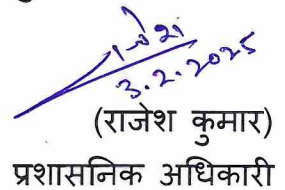 राजेश
3.2.2025
(राजेश कुमार)
प्रशासनिक अधिकारी